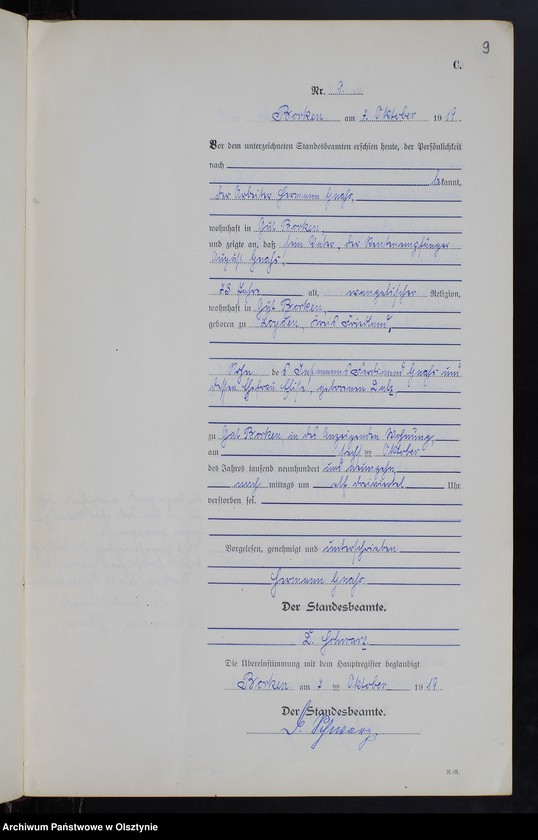 9
C.
Nr. 9.
Borken am 7. Oktober 1919.
Vor dem unterzeichneten Standesbeamten erschien heute, der Persönlichkeit
nach
bekannt,
der Arbeiter Hermann
wohnhaft in Gut Borken,
und zeigte an, daß sein Vater, der Rentenempfänger
August
73 Jahre alt, evangelischer Religion,
wohnhaft in Gut Borken,
geboren zu Friedland,
Sohn des Instmanns Ferdinand und
dessen Ehefrau geborenen
zu Gut Borken, in des Anzeigenden Wohnung,
am ten Oktober
des Jahres tausend neunhundert und neunzehn
nach mittags um elf dreiviertel Uhr
verstorben sei.
Vorgelesen, genehmigt und unterschrieben
Hermann
Der Standesbeamte.
Schwarz.
Die Übereinstimmung mit dem Hauptregister beglaubigt
Borken am Oktober 1919.
Der Standesbeamte.
Schwarz.
Archiwum Państwowe w Olsztynie